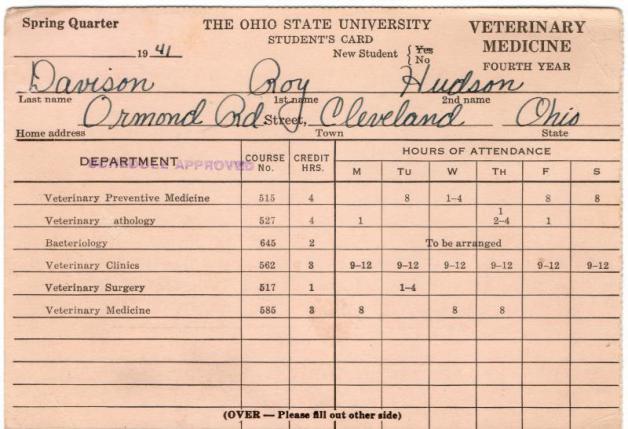 Spring Quarter THE OHIO STATE UNIVERSITY VETERINARY
STUDENT'S CARD MEDICINE
19 41 New Student { Yes No FOURTH YEAR
Davison Roy Hudson
Last name 1st name 2nd name
Ormond Rd. Street, Cleveland Ohio
Home address Town State
DEPARTMENT COURSE No. CREDIT HRS. HOURS OF ATTENDANCE
SCHEDULE APPROVED M TU W TH F S
Veterinary Preventive Medicine 515 4 8 1-4 8 8
1
Veterinary athology 527 4 1 2-4 1
Bacteriology 645 2 To be arranged
Veterinary Clinics 562 3 9-12 9-12 9-12 9-12 9-12 9-12
Veterinary Surgery 517 1 1-4
Veterinary Medicine 585 3 8 8 8
(OVER — Please fill out other side)